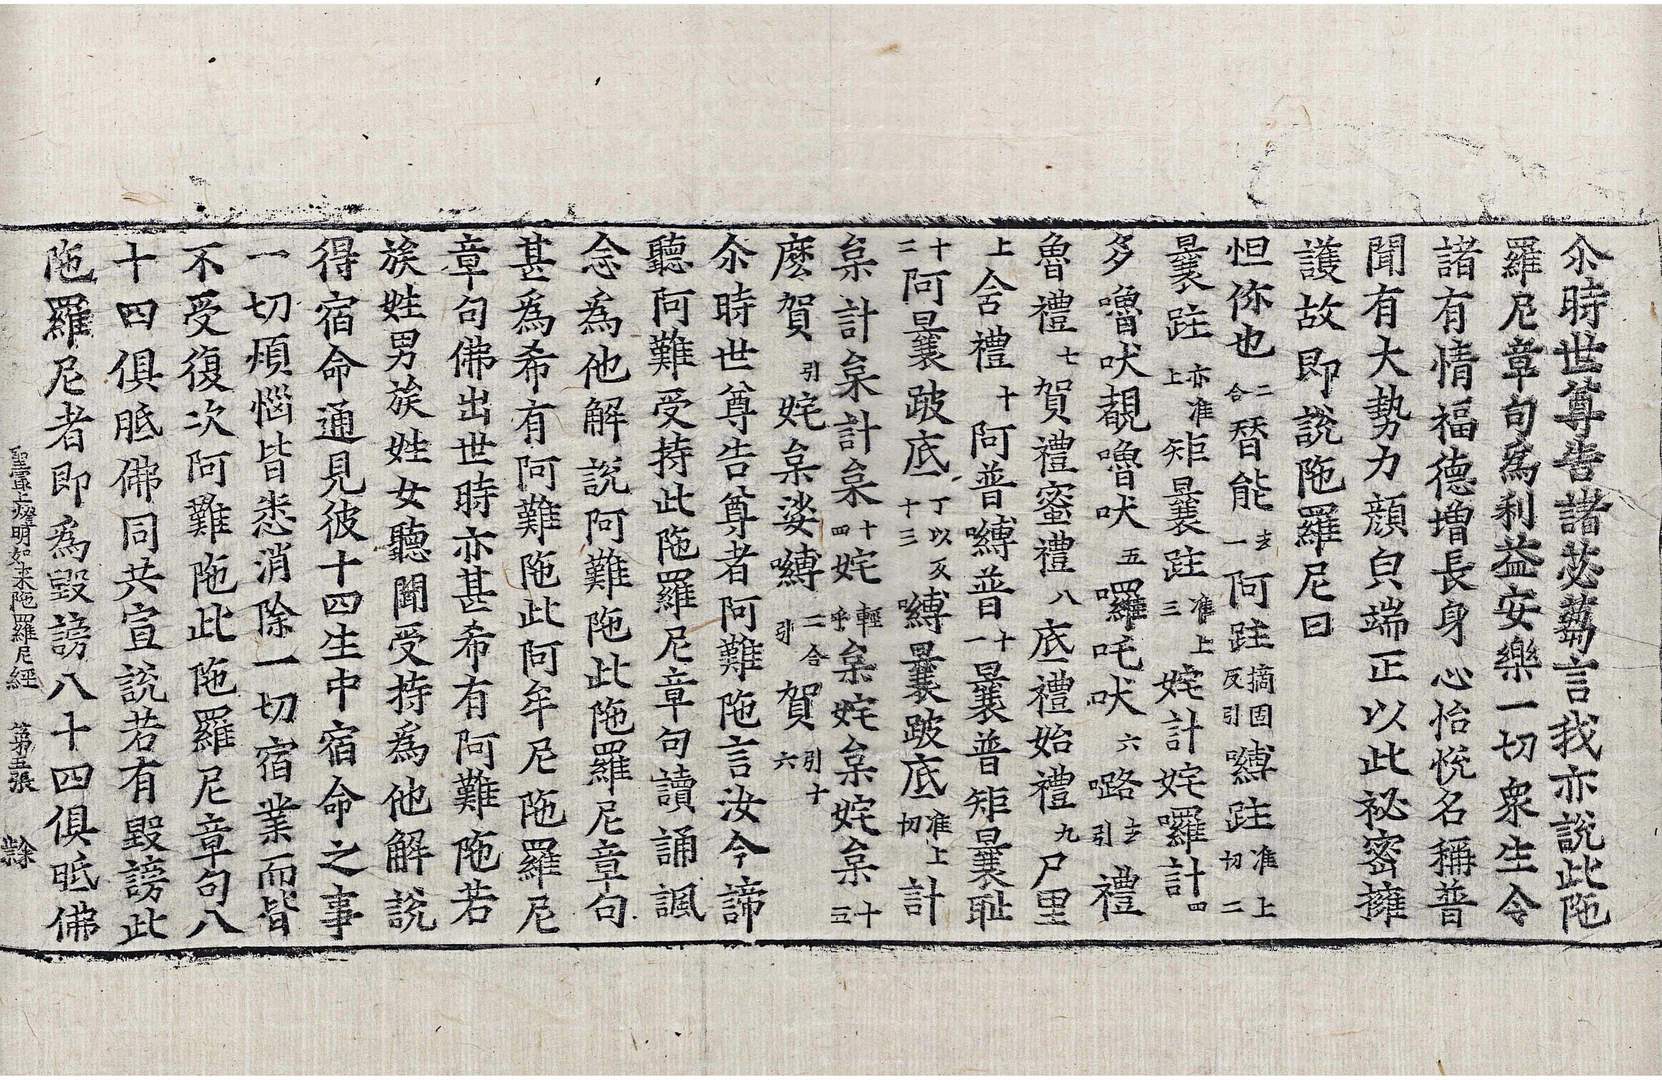 尒時世尊告諸苾蒭言我亦說此陁
羅尼章句爲利益安樂一切衆生令
諸有情福德增長身心怡悅名稱普
聞有大勢力顔皃端正以此祕密擁
護故即說陁羅尼曰
怛你也二合替能去一阿跓摘固反引嚩跓准上切二
曩跓亦准上矩曩跓准上三姹計姹囉計四
多嚕吠覩嚕吠五囉吒吠六㗚去引禮
魯禮七賀禮蜜禮八底禮始禮九尸里
上含禮十阿普嚩普十一曩普矩曩耻
十二阿曩跛底丁以反十三嚩曩跛底准上切計
枲計枲計枲十四姹輕乎枲姹枲姹枲十三
麽賀引姹枲娑嚩二合引賀引十六
尒時世尊告尊者阿難陁言汝今諦
聽阿難受持此陁羅尼章句讀誦諷
念爲他解說阿難陁此陁羅尼章句
甚爲希有阿難陁此阿牟尼陁羅尼
章句佛出世時亦甚希有阿難陁若
族姓男族姓女聽聞受持爲他解說
得宿命通見彼十四生中宿命之事
一切煩惱皆悉消除一切宿業而皆
不受復次阿難陁此陁羅尼章句八
十四俱胝佛同共宣說若有毀謗此
陁羅尼者即爲毀謗八十四俱胝佛
聖最上燈明如來陁羅尼經 第五張